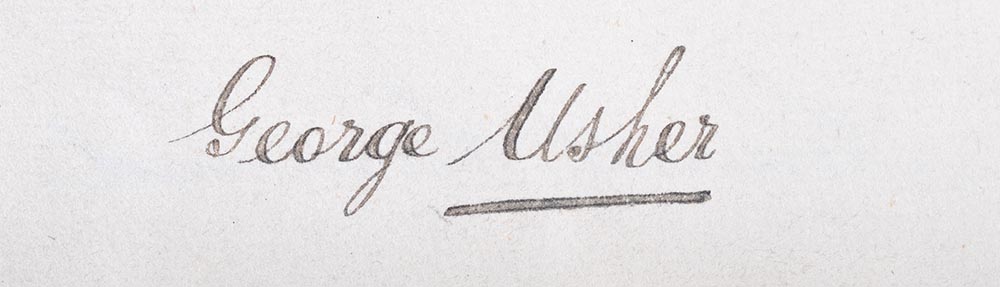 George Usher